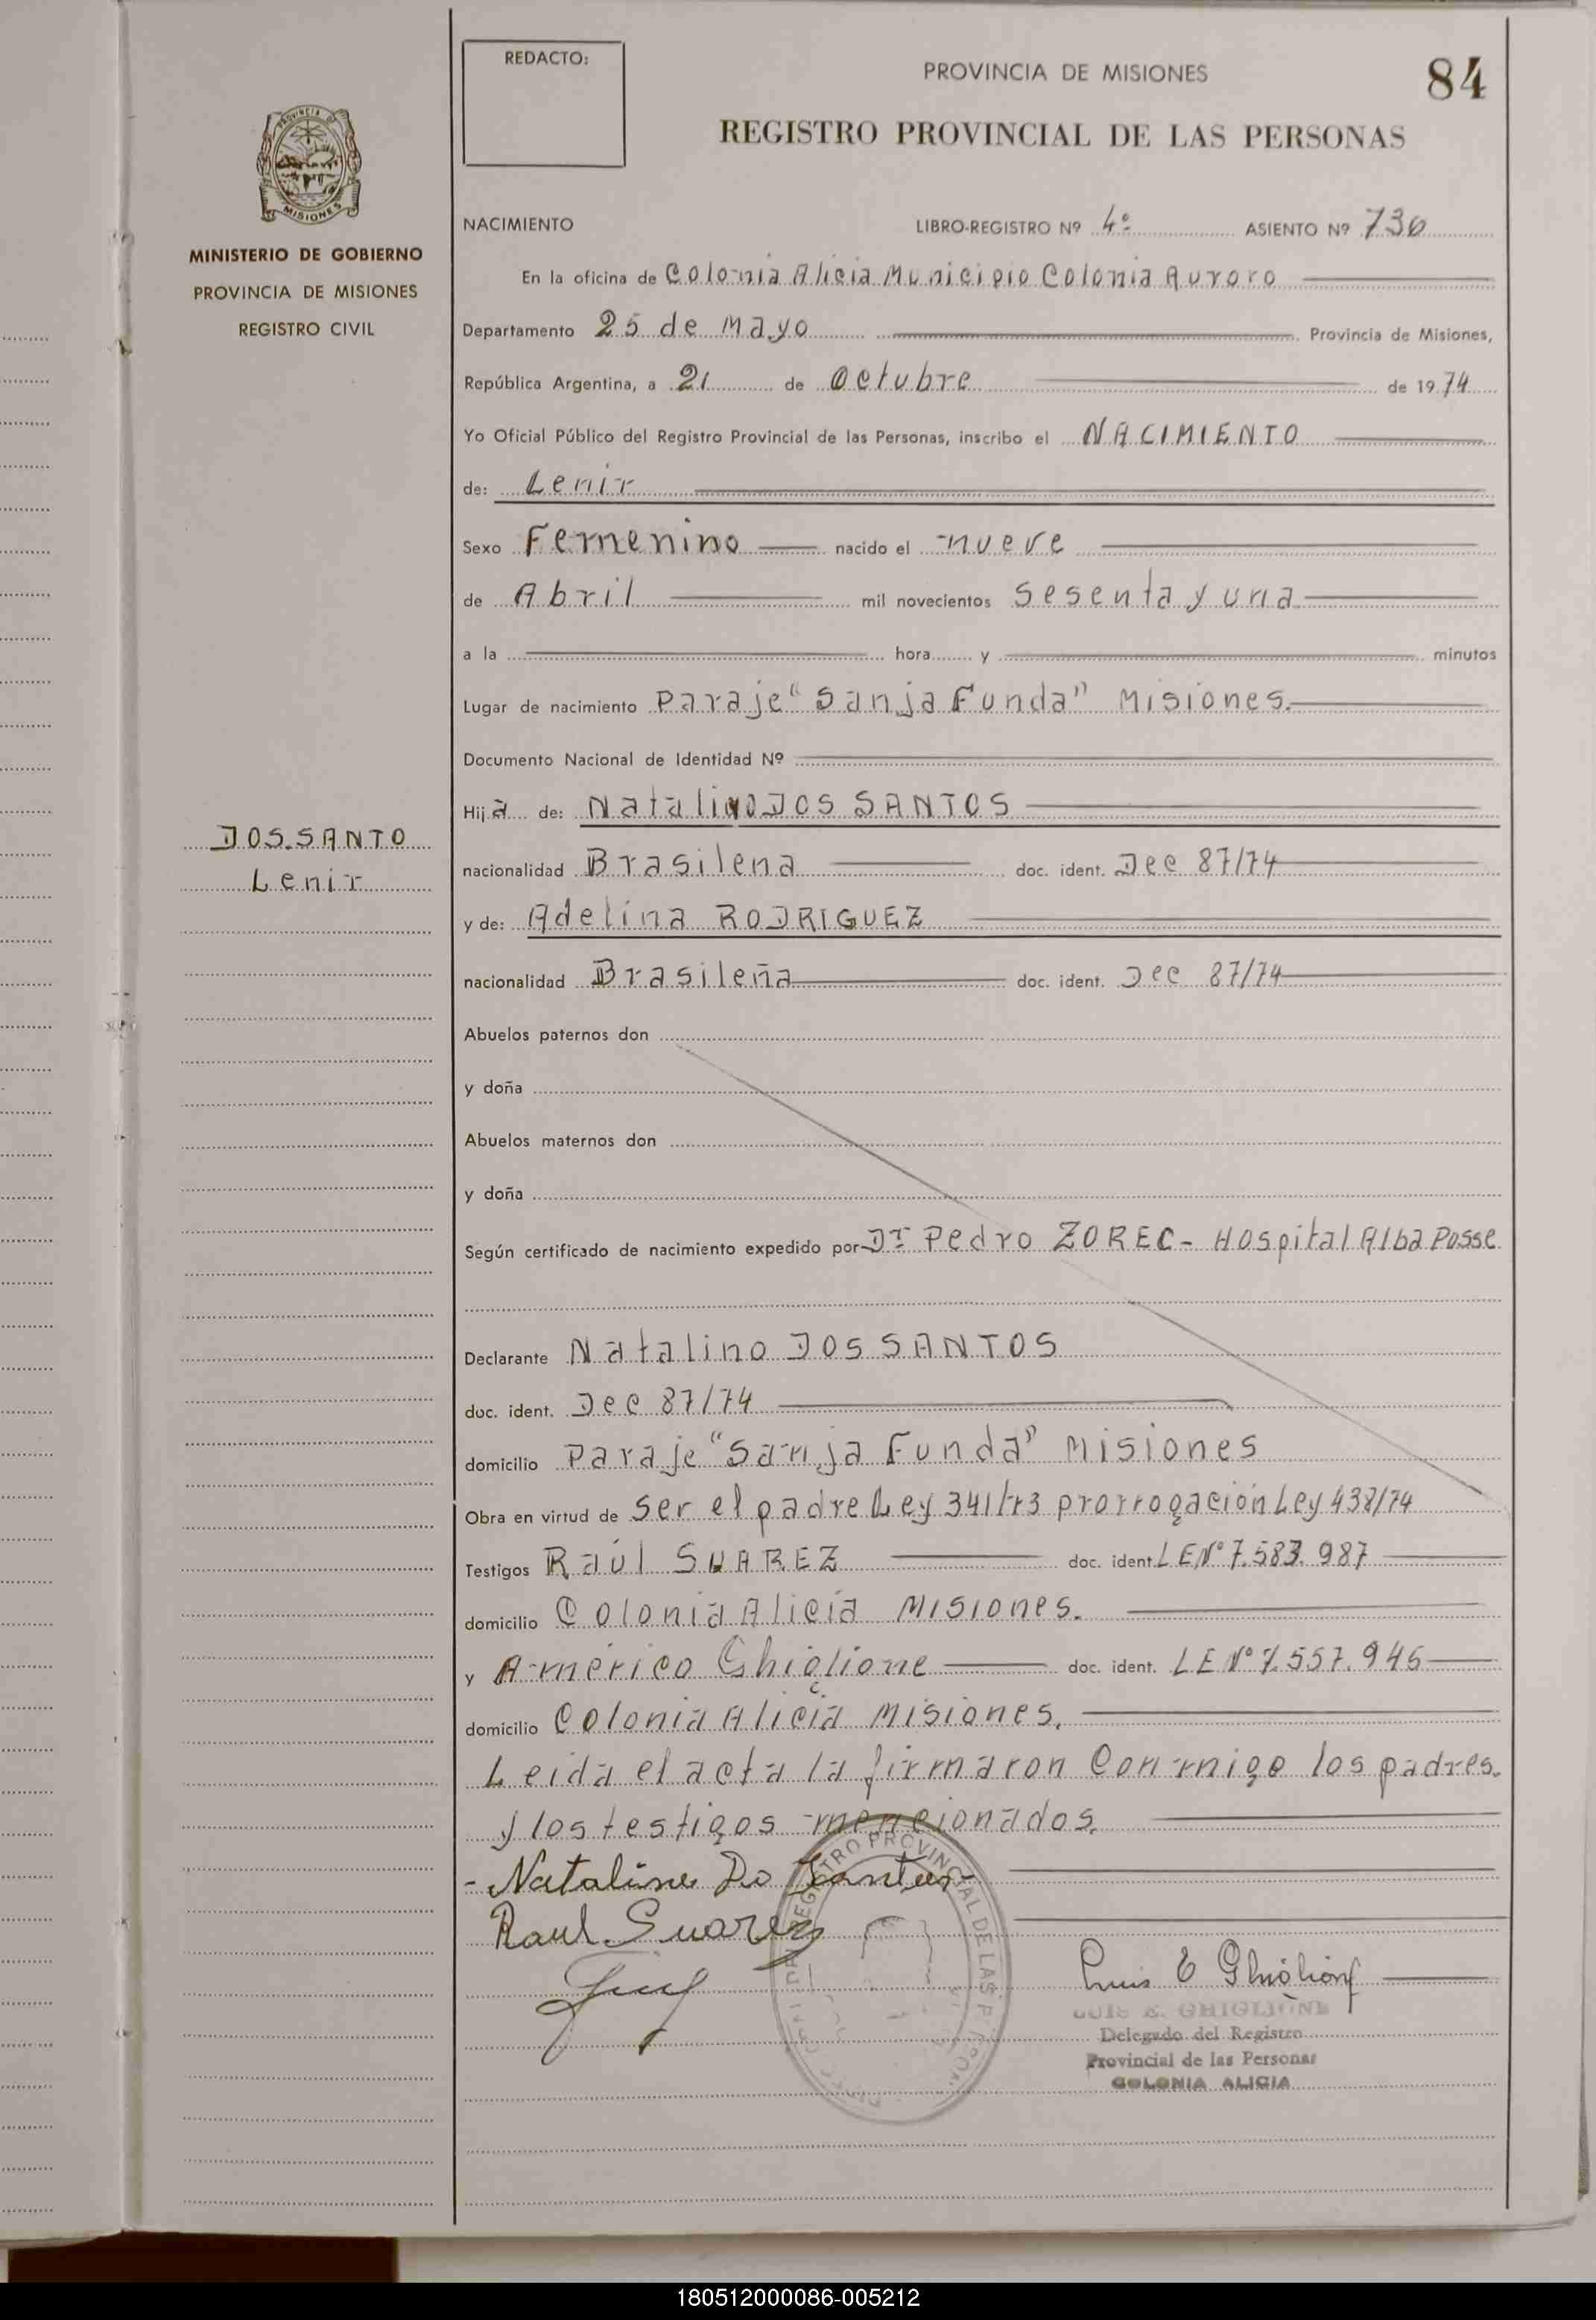 REDACTO:
PROVINCIA DE MISIONES
84
REGISTRO PROVINCIAL DE LAS PERSONAS
PROVINCIA DE
MISIONES
MINISTERIO DE GOBIERNO
PROVINCIA DE MISIONES
REGISTRO CIVIL
NACIMIENTO LIBRO-REGISTRO Nº 4º ASIENTO Nº 730
En la oficina de Colonia Alicia Municipio Colonia Auroro
Departamento 25 de Mayo Provincia de Misiones,
República Argentina, a 21 de Octubre de 1974
Yo Oficial Público del Registro Provincial de las Personas, inscribo el NACIMIENTO
de: Lenir
Sexo Femenino nacido el nueve
de Abril mil novecientos sesenta y una
a la hora y minutos
Lugar de nacimiento Paraje "Sanja Funda" Misiones.
Documento Nacional de Identidad Nº
Hija de: Natalino DOS SANTOS
DOS SANTO
Lenir
nacionalidad Brasilena doc. ident. Dec 87/74
y de: Adelina RODRIGUEZ
nacionalidad Brasileña doc. ident. Dec 87/74
Abuelos paternos don
y doña
Abuelos maternos don
y doña
Según certificado de nacimiento expedido por Dr Pedro ZOREC - Hospital Alba Posse
Declarante Natalino DOS SANTOS
doc. ident. Dec 87/74
domicilio Paraje "Sanja Funda" Misiones
Obra en virtud de ser el padre Ley 341/73 prorrogación Ley 438/74
Testigos Raúl SUAREZ doc. ident. LE Nº 7.583.987
domicilio Colonia Alicia Misiones.
y Américo Ghiglione doc. ident. LE Nº 7.557.946
domicilio Colonia Alicia Misiones.
Leida el acta la firmaron conmigo los padres.
y los testigos mencionados.
Natalino Do Santos
Raul Suarez
REGISTRO PROVINCIAL DE LAS
Luis E Ghiglione
LUIS E. GHIGLIONE
Delegado del Registro
Provincial de las Personas
COLONIA ALICIA
180512000086-005212